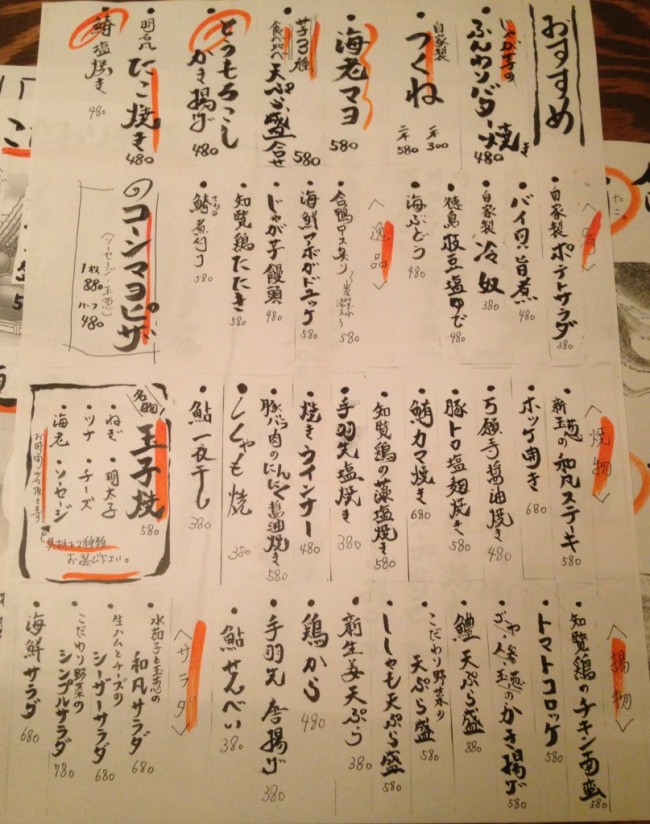 おすすめ
じゃが芋の
ふんわりバター焼き
480
自家製
つくね
一本 300
二本 580
海老マヨ
580
芋3種
食べ比べ天ぷら盛合せ
580
とうもろこし
かき揚げ
480
明石風たこ焼き
480
鰆塩焼き
480
自家製ポテトサラダ
380
バイ貝旨煮
480
自家製冷奴
380
徳島枝豆塩ゆで
480
海ぶどう
480
〈逸品〉
580
海鮮アボガドユッケ
580
じゃが芋饅頭
480
知覧鶏たたき
580
580
コーンマヨピザ
(ソーセージ・玉葱)
1枚 880
ハーフ 480
〈焼物〉
新玉葱の和風ステーキ
580
ホッケ開き
680
万願寺醤油焼き
480
豚トロ塩麹焼き
580
鮪カマ焼き
680
知覧鶏の藻塩焼き
580
手羽先塩焼き
380
焼きウインナー
480
豚バラ肉のにんにく醤油焼き
580
ししゃも焼
380
鮎一夜干し
380
名物
玉子焼
580
・ねぎ ・明太子
・ツナ ・チーズ
・海老 ・ソーセージ
お選び下さい。
〈揚物〉
知覧鶏のチキン南蛮
580
トマトコロッケ
580
ゴーヤ人参玉葱のかき揚げ
580
鱧天ぷら盛
880
こだわり野菜の
天ぷら盛
580
ししゃも天ぷら盛
580
新生姜天ぷら
380
鶏から
480
手羽先唐揚げ
380
鮎せんべい
380
〈サラダ〉
水茄子と玉葱の
和風サラダ
680
生ハムとチーズの
シーザーサラダ
680
こだわり野菜の
シンプルサラダ
780
海鮮サラダ
680